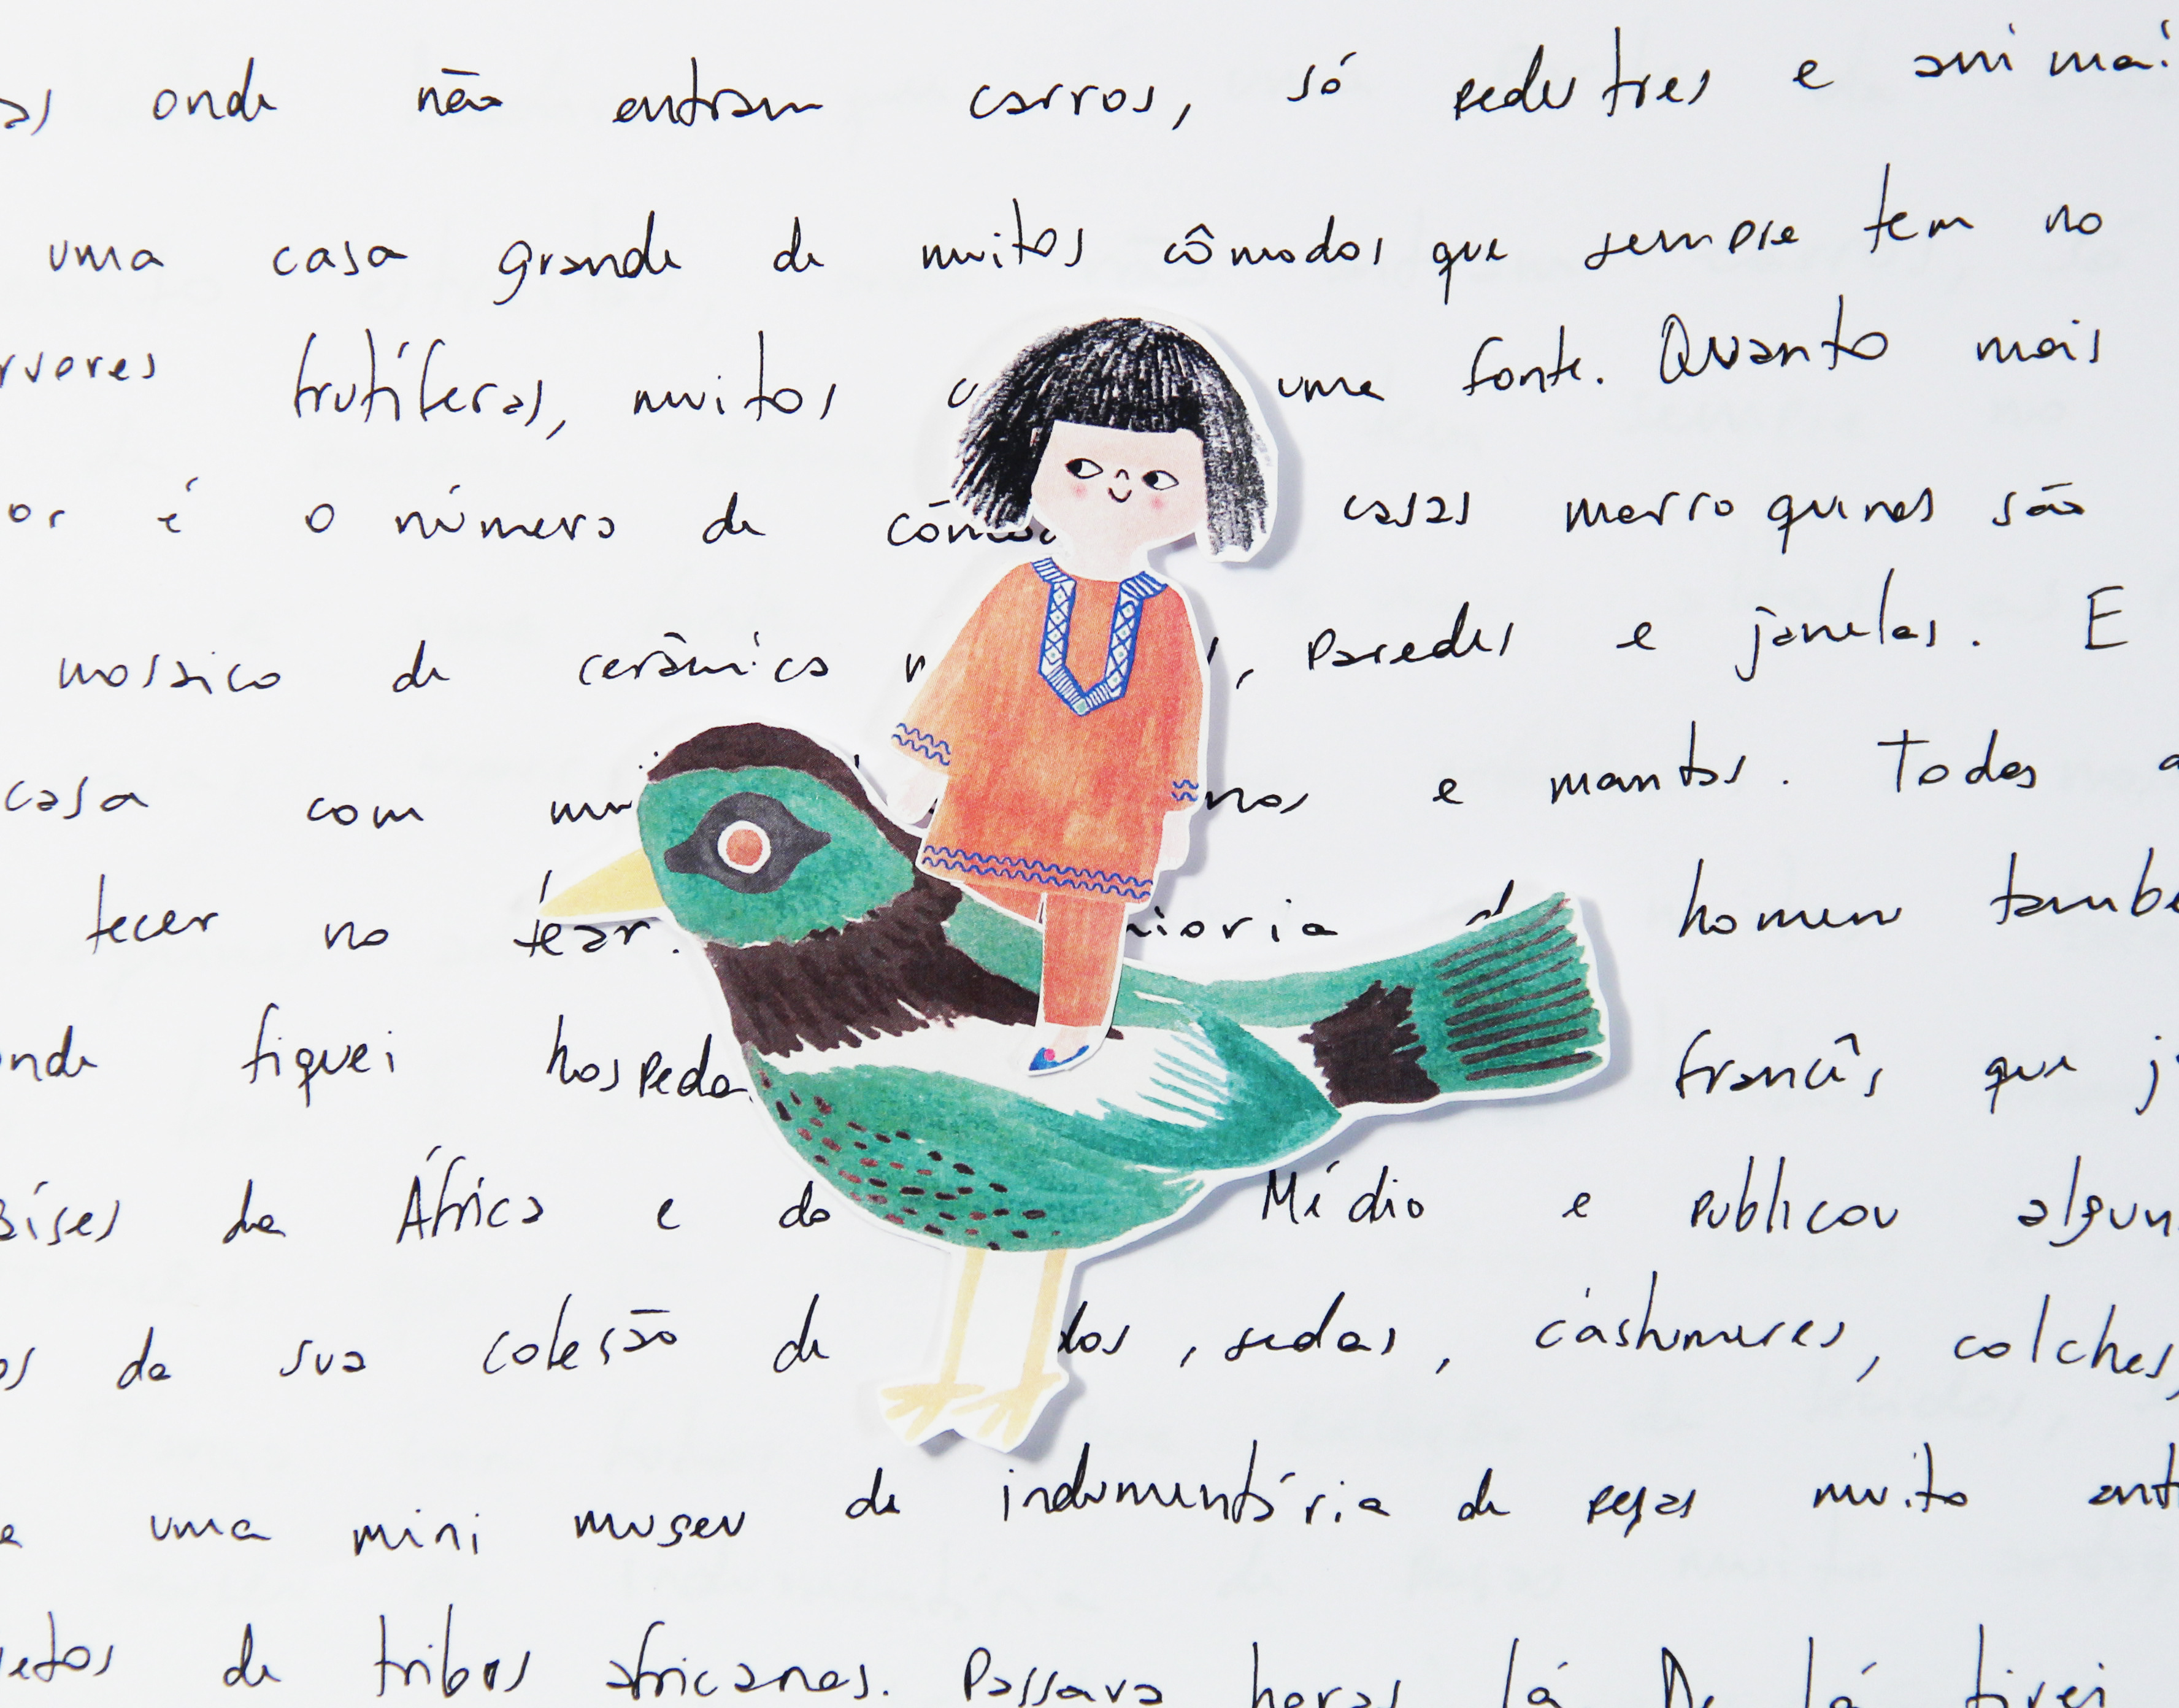 as onde não entram carros, só pedestres e animai
uma casa grande de muitos cômodos que sempre tem no
rvores frutíferas, muitos uma fonte. Quanto mais
or é o número de cômo casas marroquinas são
mosaico de cerâmica paredes e janelas. E
casa com e mantas. Todas a
tecer no tear. aioria homem també
onde fiquei hospeda francês que j
aíses da África e do Médio e publicou algun
os da sua coleção de dos, sedas, cashmeres, colchas,
e uma mini museu de indumentária de peças muito anti
etos de tribos africanas. Passava horas lá. De lá tirei